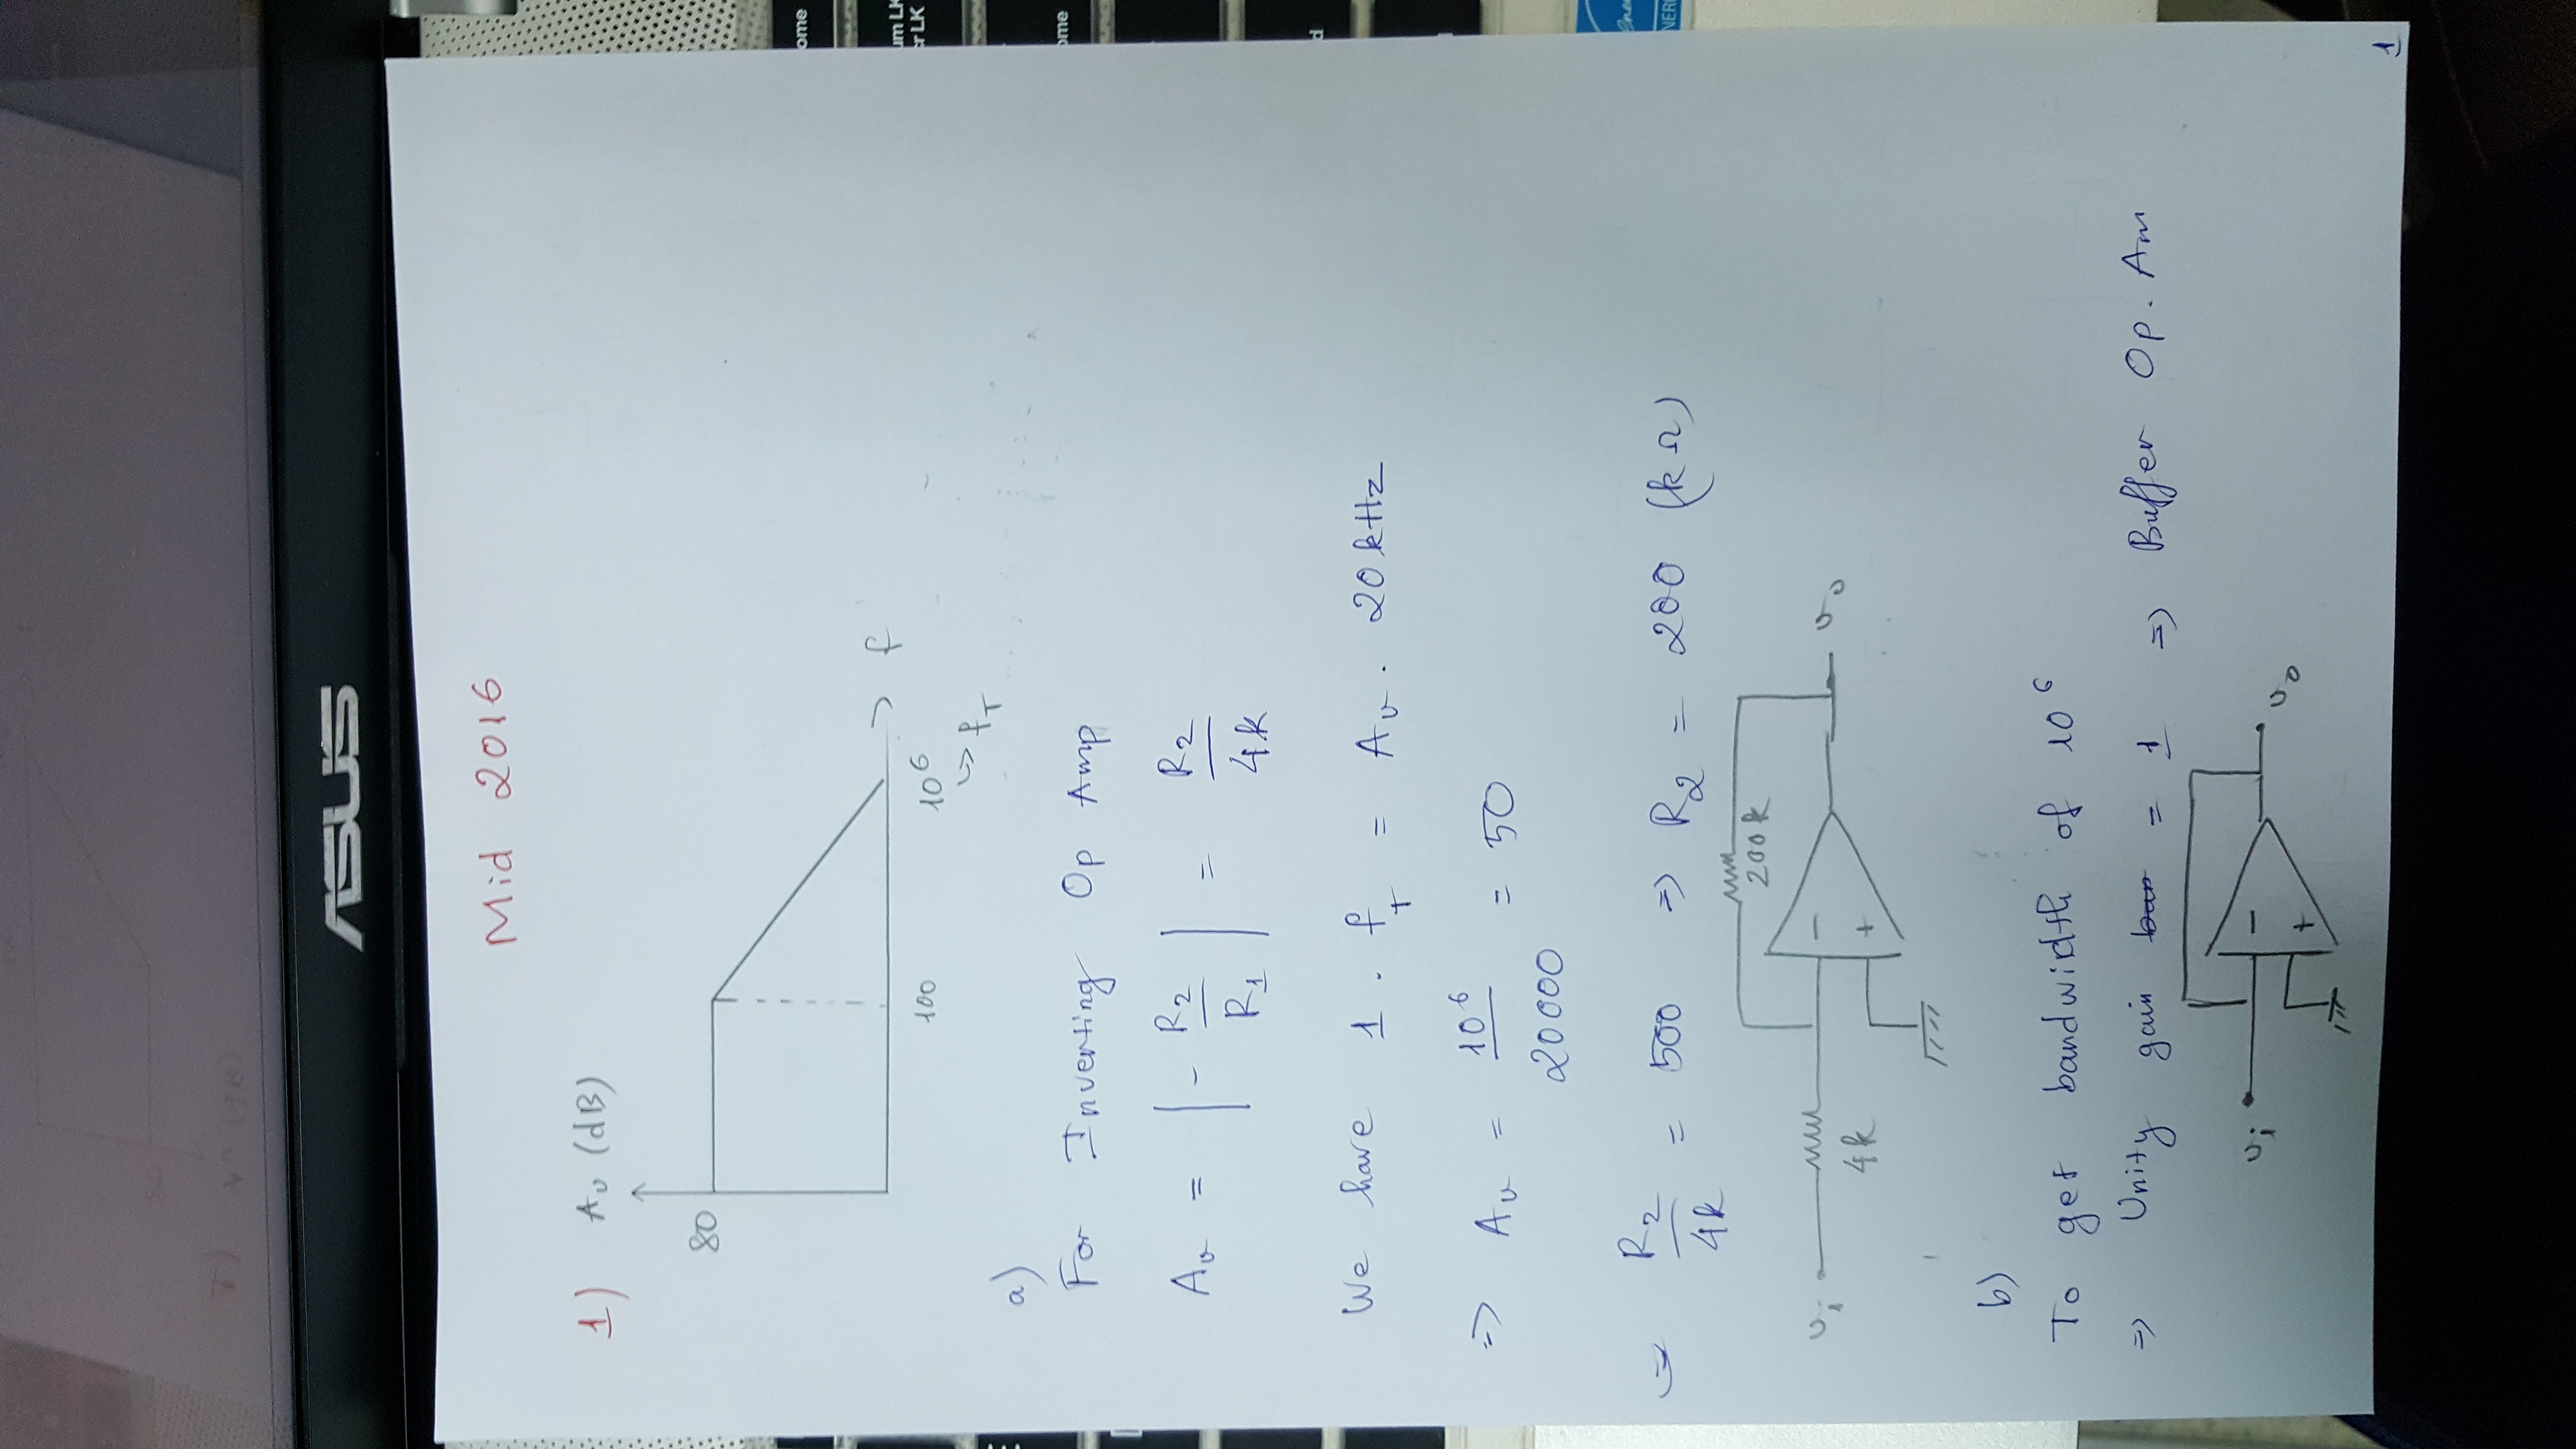 ASUS
Mid 2016
1) Av (dB)
80
f
100 10^6
↳ fT
a)
For Inverting Op Amp
Av = | - R2/R1 | = R2/4k
We have 1 . fT = Av . 20 kHz
=> Av = 10^6/20000 = 50
=> R2/4k = 500 => R2 = 200 (kΩ)
200k
vi - vo
4k +
b)
To get bandwidth of 10^6
=> Unity gain = 1 => Buffer Op. Am
vi - vo
+
1
ome
ome